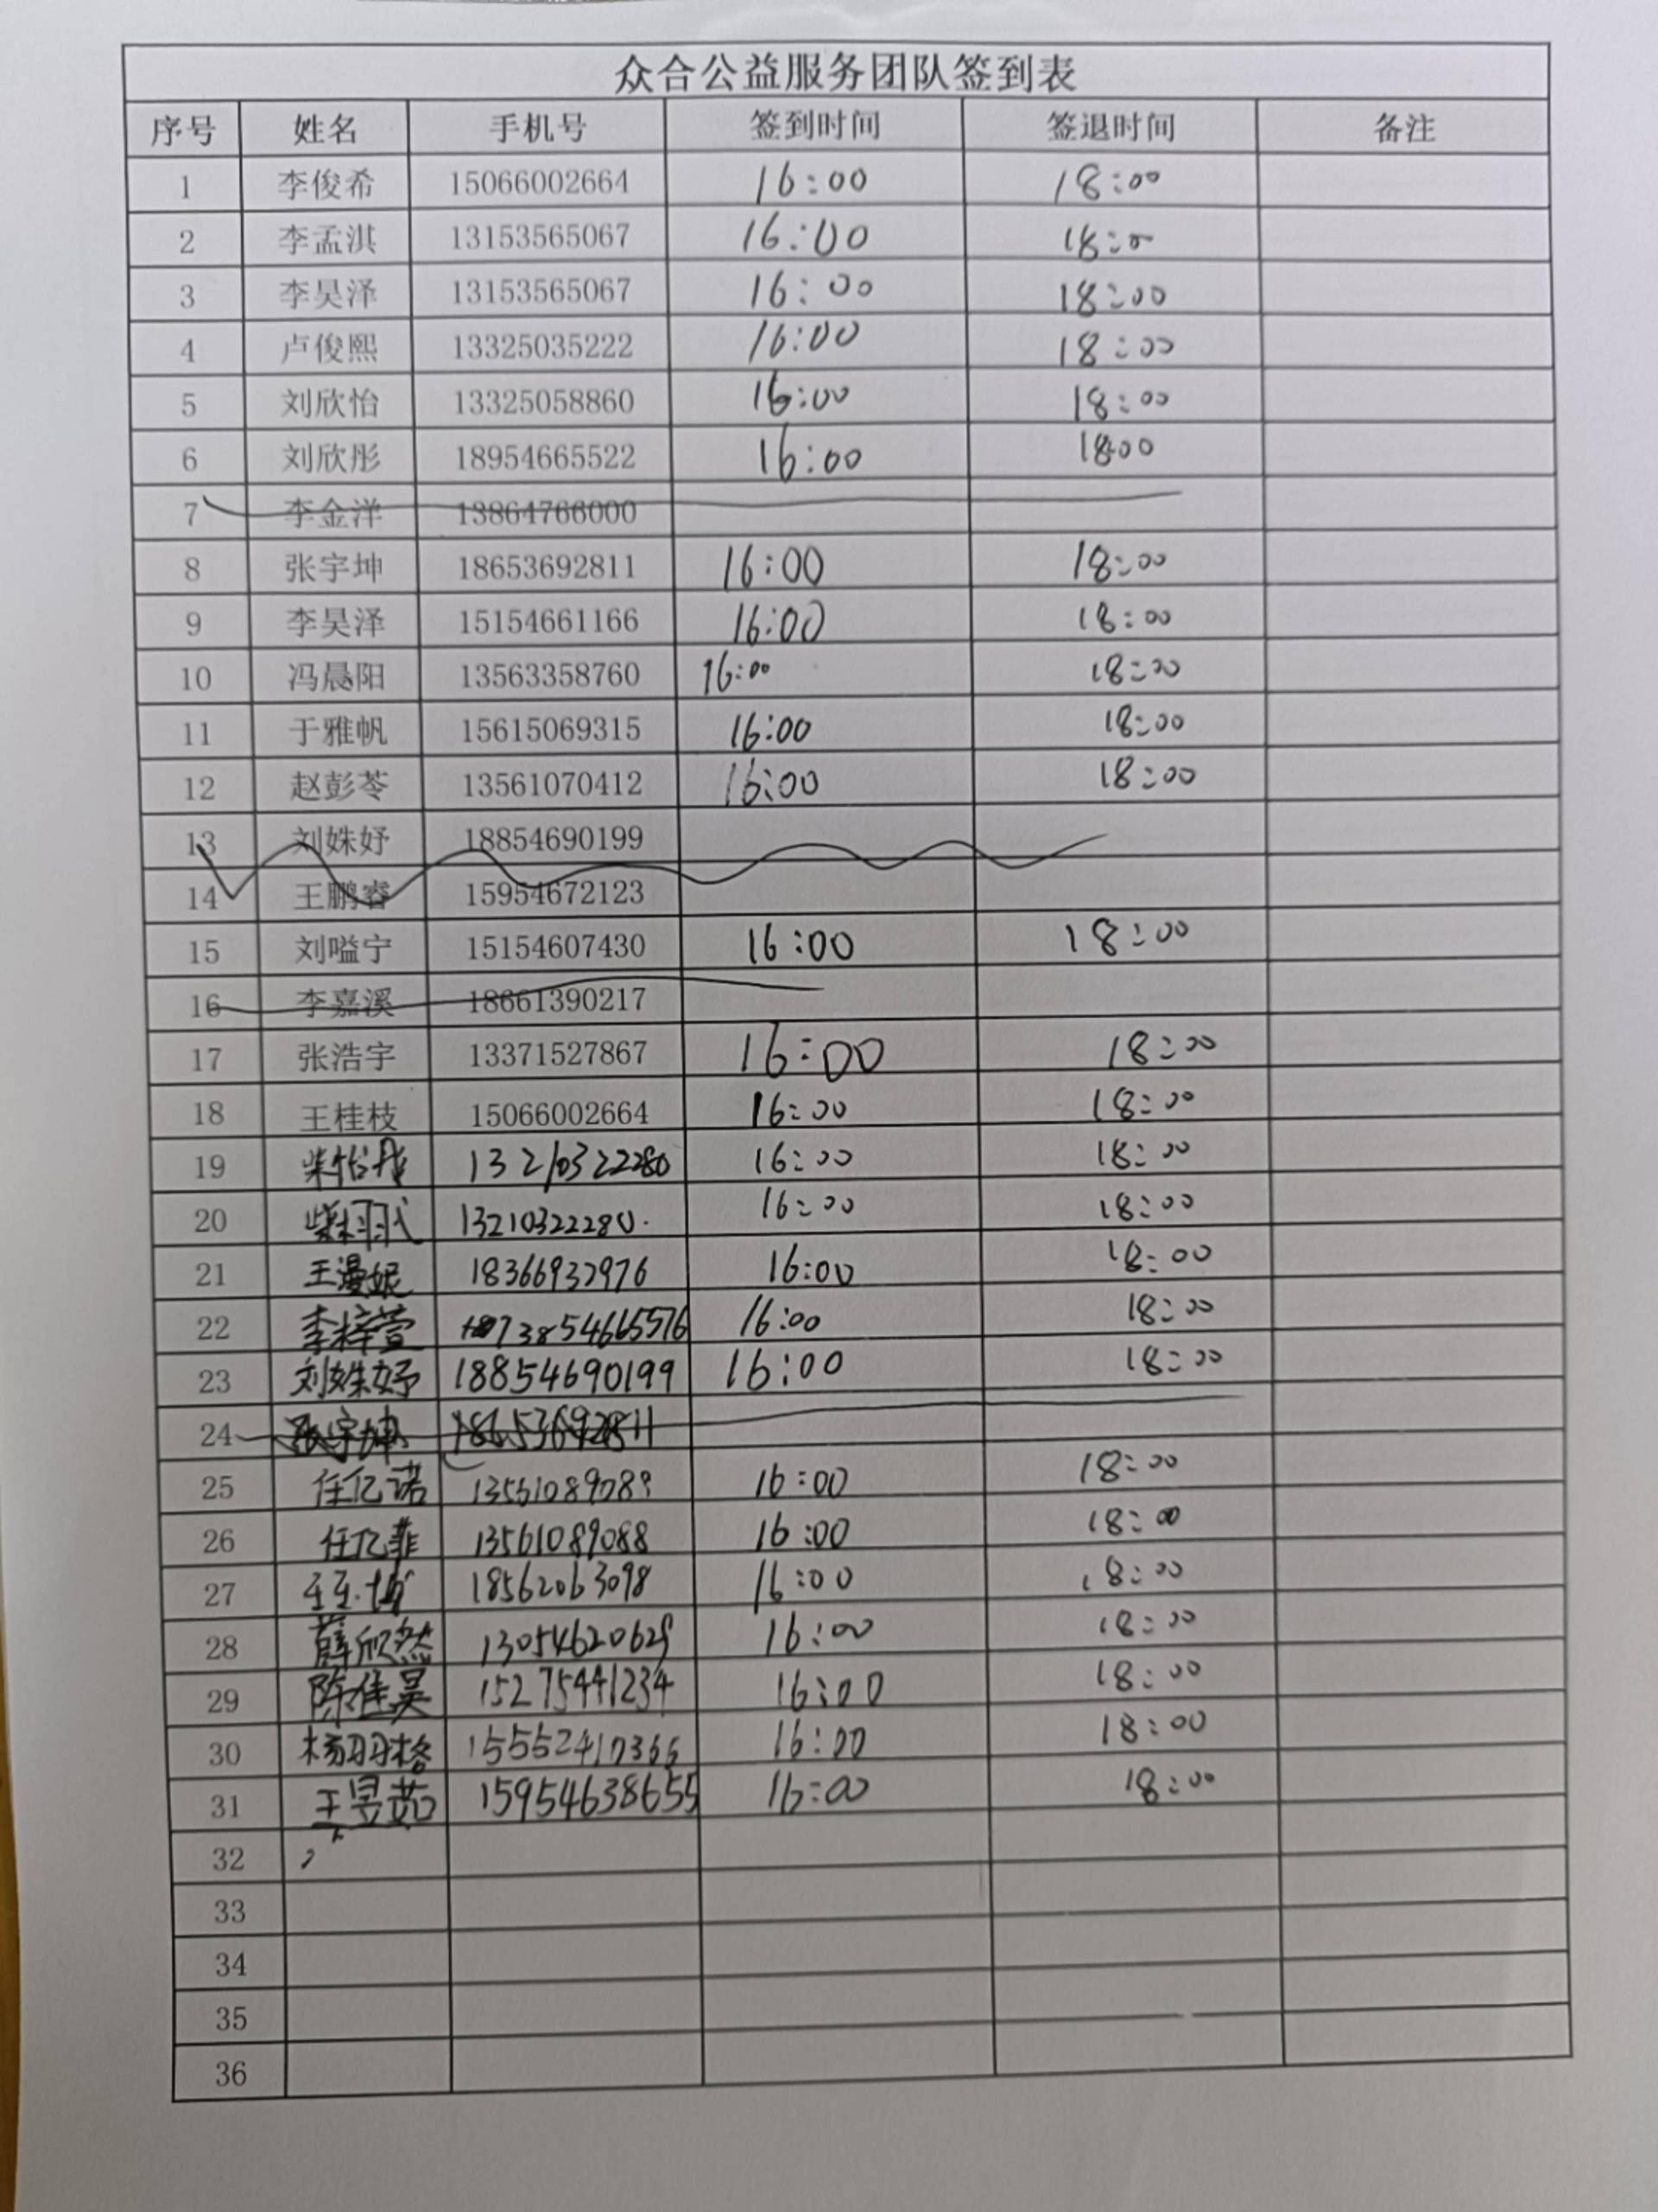 众合公益服务团队签到表
序号 姓名 手机号 签到时间 签退时间 备注
1 李俊希 15066002664 16:00 18:00
2 李孟淇 13153565067 16:00 18:0
3 李昊泽 13153565067 16:00 18:00
4 卢俊熙 13325035222 16:00 18:00
5 刘欣怡 13325058860 16:00 18:00
6 刘欣彤 18954665522 16:00 18:00
7 李金洋 13864766000
8 张宇坤 18653692811 16:00 18:00
9 李昊泽 15154661166 16:00 18:00
10 冯晨阳 13563358760 16:00 18:00
11 于雅帆 15615069315 16:00 18:00
12 赵彭苓 13561070412 16:00 18:00
13 刘姝妤 18854690199
14 王鹏睿 15954672123
15 刘嗌宁 15154607430 16:00 18:00
16 李嘉溪 18661390217
17 张浩宇 13371527867 16:00 18:00
18 王桂枝 15066002664 16:00 18:00
19 13210322280 16:00 18:00
20 13210322280 16:00 18:00
21 王漫妮 18366937976 16:00 18:00
22 李梓萱 16:00 18:00
23 刘姝妤 18854690199 16:00 18:00
24 张宇坤 18653692811
25 任亿诺 16:00 18:00
26 任亿菲 13561089088 16:00 18:00
27 18562063098 16:00 18:00
28 薛欣然 13054620629 16:00 18:00
29 陈佳昊 15275441234 16:00 18:00
30 杨羽格 15552410366 16:00 18:00
31 王昱茹 15954638655 16:00 18:00
32
33
34
35
36